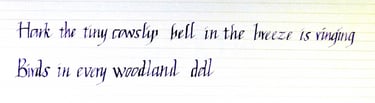 Hark the tiny cowslip bell in the breeze is ringing
Birds in every woodland ddl